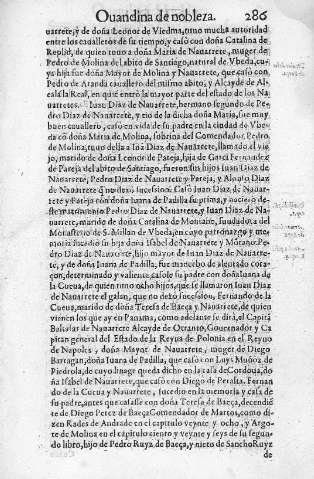 Ouandina de nobleza. 286
uarrete, y de doña Leonor de Viedma, tuuo mucha autoridad
entre los caualleros de su tiempo, y casò con doña Catalina de
de quien tuuo a doña Maria de Nauarrete, muger de
Pedro de Molina del abito de Santiago, natural de Vbeda, cu
ya hija fue doña Mayor de Molina y Nauarrete, que casò con
Pedro de Aranda cauallero del mismo abito, y Alcayde de Al-
cala la Real, en quiē entrò la mayor parte del estado de los Na
uarretes. Iuan Diaz de Nauarrete, hermano segundo de Pe-
dro Diaz de Nauarrete, y tio de la dicha doña Maria, fue muy
buen cauallero, casò en vida de su padre en la ciudad de Vbe-
da cō doña Maria de Molina, sobrina del Comendador Pedro de
Molina, tuuo della a Iuā Diaz de Nauarrete, llamado el vie-
jo, marido de doña Leonor de Pareja, hija de Garci Fernandez
de Pareja del abito de Santiago, fueron sus hijos Iuan Diaz de
Nauarrete, Pedro Diaz de Nauarrete y Pareja, y Alonso Diaz
de Nauarrete q̄ no dexò sucession. Casò Iuan Diaz de Nauarre
te y Pareja con doña Iuana de Padilla su prima, y nacierō de-
ste matrimonio Pedro Diaz de Nauarrete, y Iuan Diaz de Na-
uarrete, marido de doña Catalina de fundadora del
Monasterio de S. Millan de Vbeda, en cuyo patronazgo y me
moria sucedio su hija doña Isabel de Nauarrete y Pe
dro Diaz de Nauarrete, hijo mayor de Iuan Diaz de Nauarre-
te, y de doña Iuana de Padilla, fue mancebo de alentado cora-
çon, determinado y valiente, casole su padre con doña Iuana de
la Cueua, de quien tuuo ocho hijos, que se llamaron Iuan Diaz
de Nauarrete el galan, que no dexò sucession, Fernando de la
Cueua, marido de doña Teresa de Baeça y Nauarrete, de quien
vienen los que ay en Panama, como adelante se dirà, el Capitā
Baltasar de Nauarrete Alcayde de Otranto, Gouernador y Ca
pitan general del Estado de la Reyna de Polonia en el Reyno
de Napoles, doña Mayor de Nauarrete, muger de Diego
Barragan, doña Iuana de Padilla, que casò con Luys Muñoz de
Piedrola, de cuyo linage queda dicho en la casa de Cordoua, do
ña Isabel de Nauarrete, que casò con Diego de Peralta. Fernan
do de la Cueua y Nauarrete, sucedio en la memoria y casa de
su padre, antes que casasse con doña Teresa de Baeça, decendiē
te de Diego Perez de Baeça Comendador de Martos, como di-
zen Rades de Andrade en el capitulo veynte y ocho, y Argo-
te de Molina en el capitulo ciento y veynte y seys de su segun
do libro, hijo de Pedro Ruyz de Baeça, y nieto de Sancho Ruyz
de